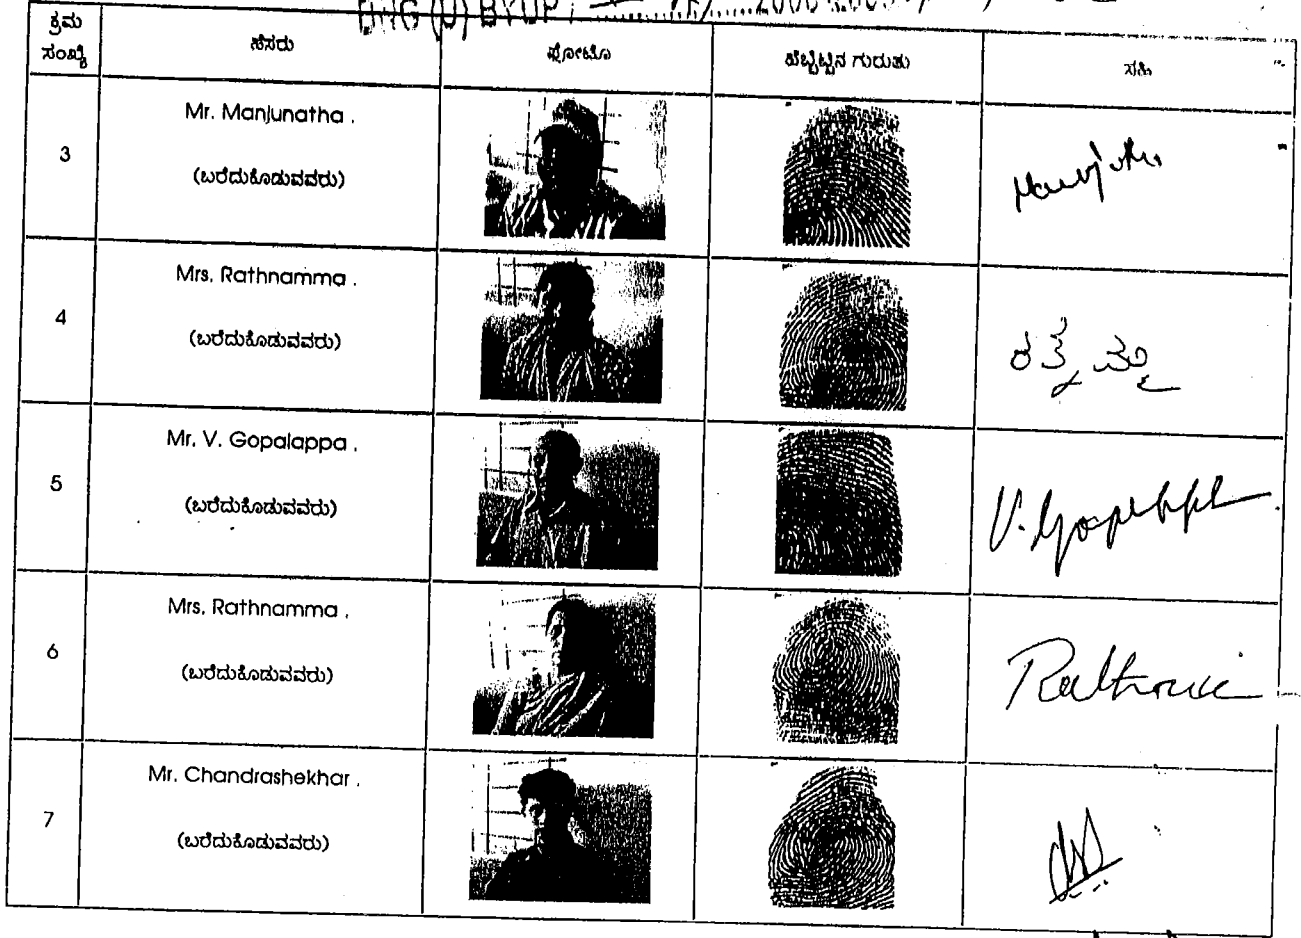 ಕ್ರಮ ಸಂಖ್ಯೆ ಹೆಸರು ಫೋಟೊ ಹೆಬ್ಬೆಟ್ಟಿನ ಗುರುತು ಸಹಿ
3 Mr. Manjunatha .
(ಬರೆದುಕೊಡುವವರು)
4 Mrs. Rathnamma .
(ಬರೆದುಕೊಡುವವರು)
ರತ್ನಮ್ಮ
5 Mr. V. Gopalappa .
(ಬರೆದುಕೊಡುವವರು)
6 Mrs. Rathnamma .
(ಬರೆದುಕೊಡುವವರು)
7 Mr. Chandrashekhar .
(ಬರೆದುಕೊಡುವವರು)